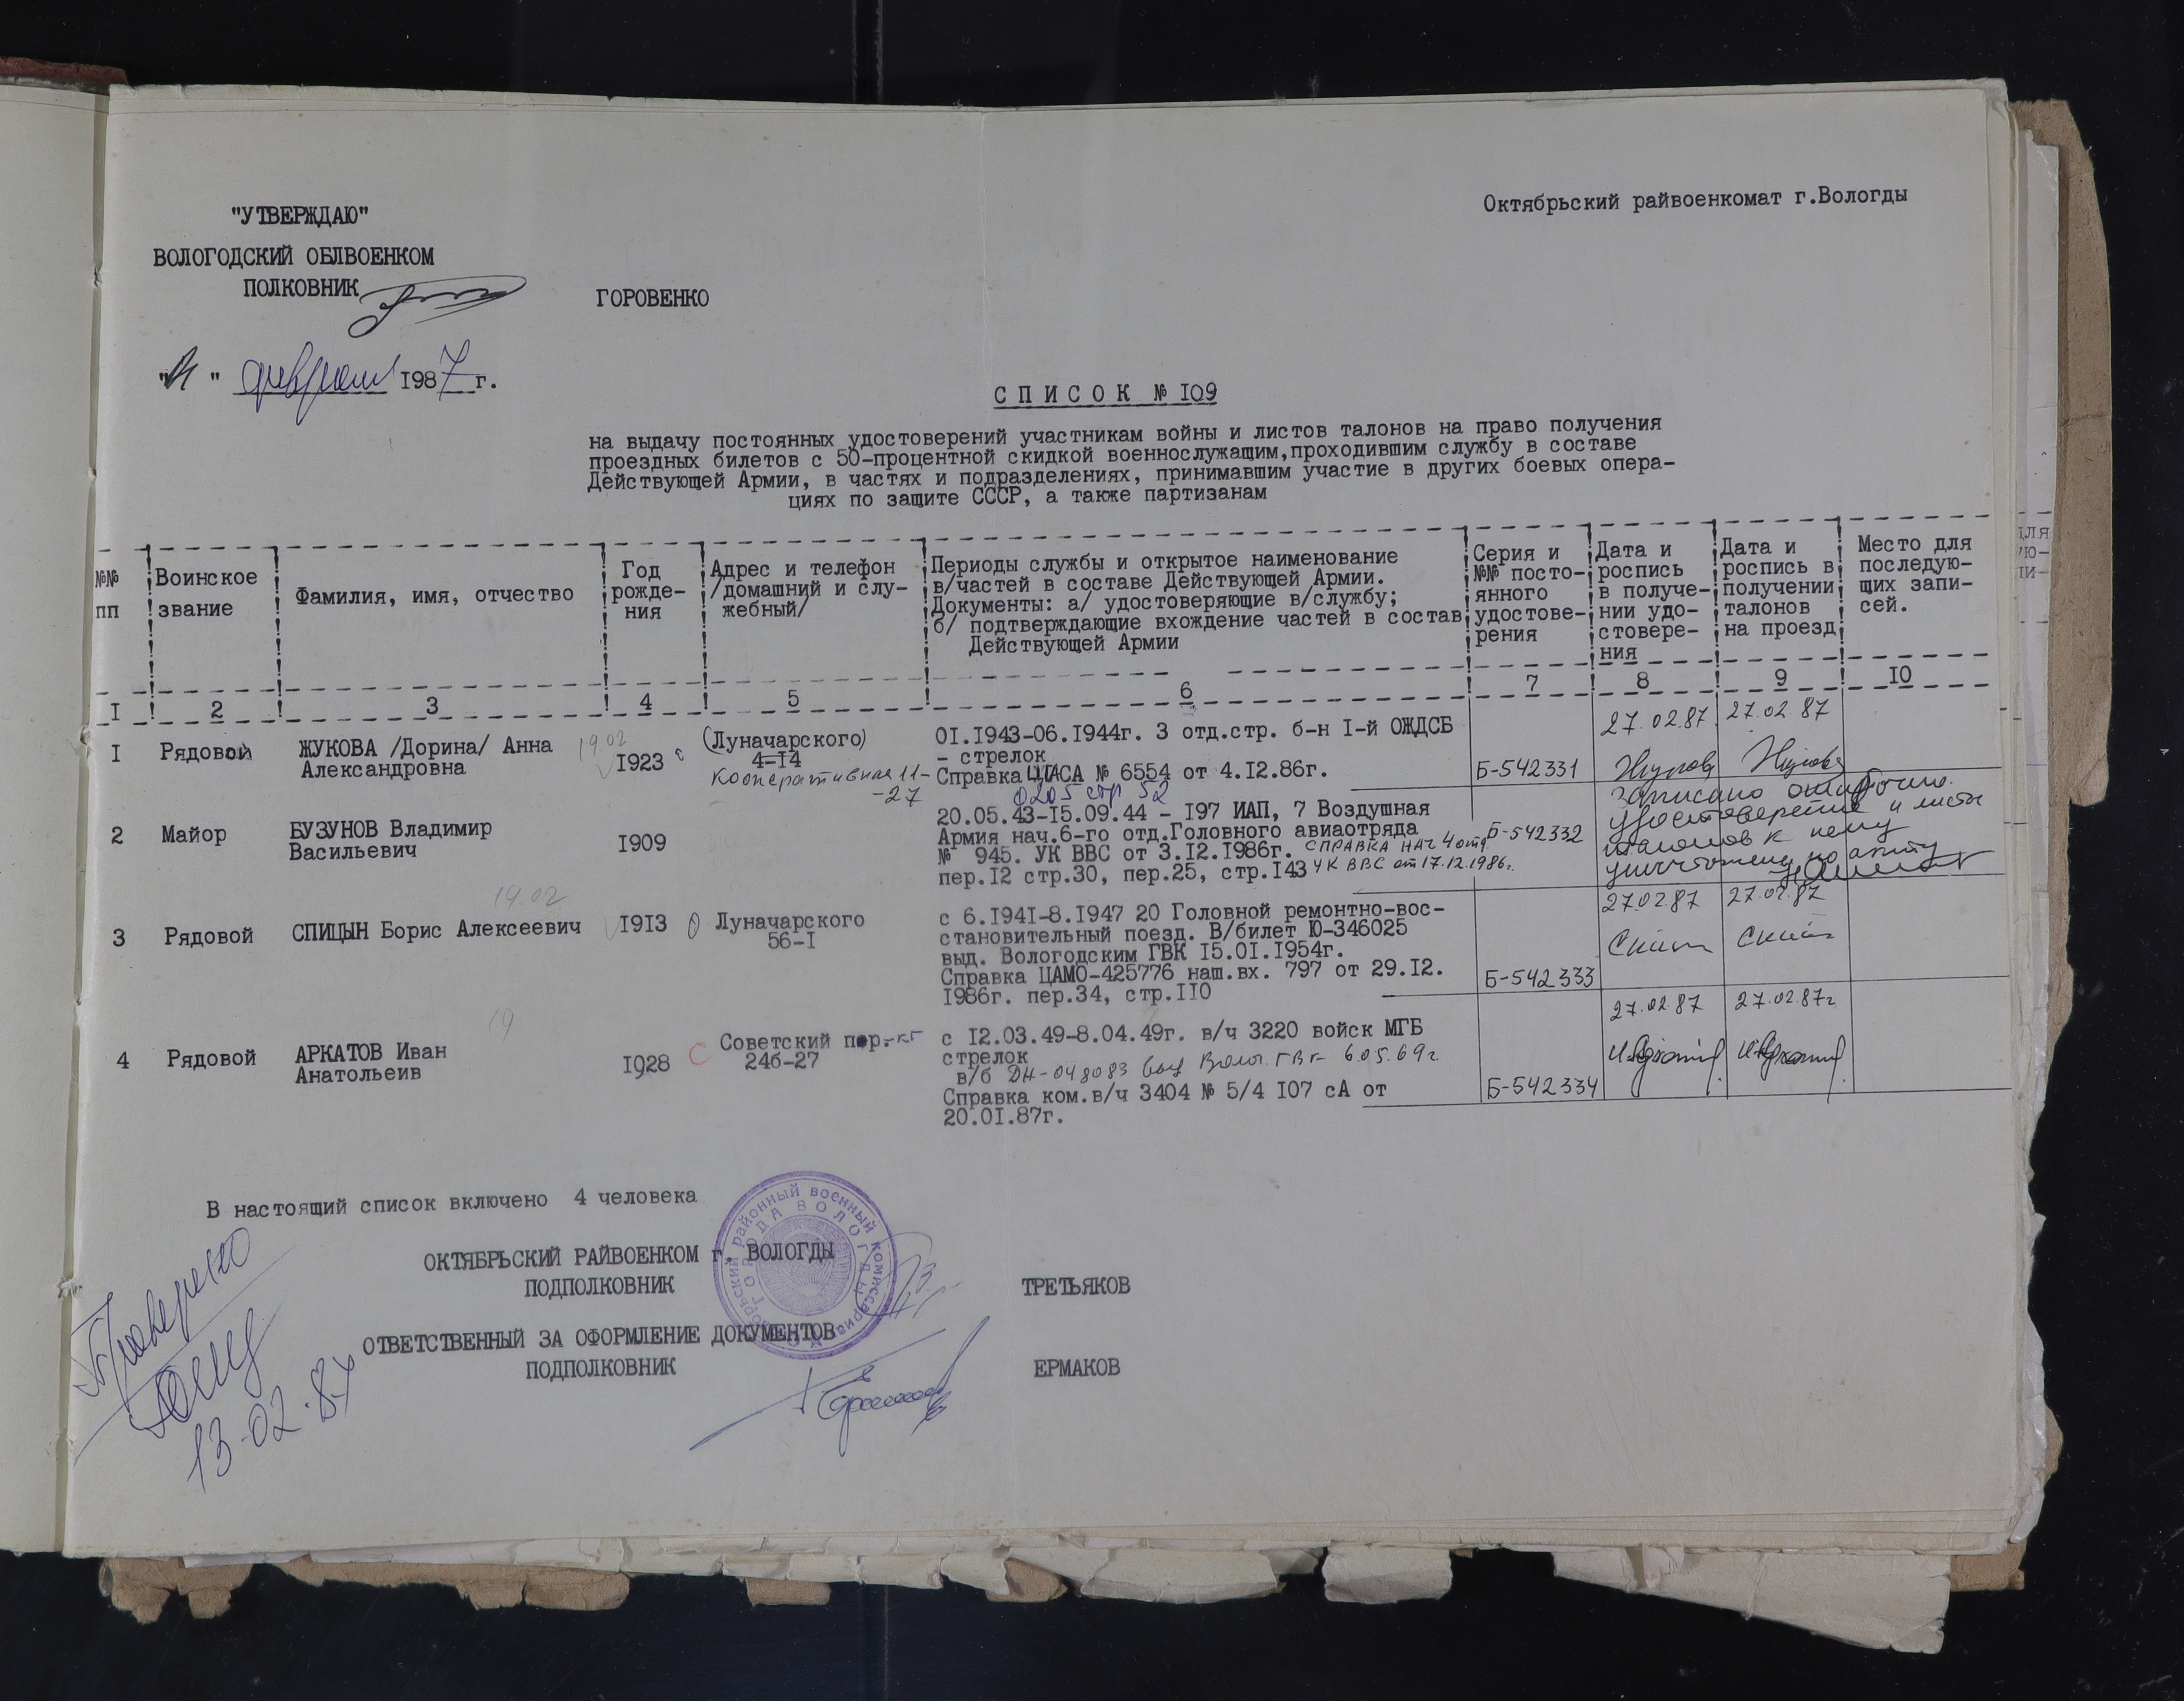 Октябрьский райвоенкомат г.Вологды
"УТВЕРЖДАЮ"
ВОЛОГОДСКИЙ ОБЛВОЕНКОМ
ПОЛКОВНИК
ГОРОВЕНКО
" " февраля 1987 г.
СПИСОК № I09
на выдачу постоянных удостоверений участникам войны и листов талонов на право получения
проездных билетов с 50-процентной скидкой военнослужащим,проходившим службу в составе
Действующей Армии, в частях и подразделениях, принимавшим участие в других боевых опера-
циях по защите СССР, а также партизанам
№№ пп
Воинское звание
Фамилия, имя, отчество
Год рожде- ния
Адрес и телефон /домашний и слу- жебный/
Периоды службы и открытое наименование
в/частей в составе Действующей Армии.
Документы: а/ удостоверяющие в/службу;
б/ подтверждающие вхождение частей в состав
Действующей Армии
Серия и №№ посто- янного удостове- рения
Дата и роспись в получе- нии удо- стовере- ния
Дата и роспись в получении талонов на проезд
Место для последую- щих запи- сей.
I 2 3 4 5 6 7 8 9 I0
I Рядовой ЖУКОВА /Дорина/ Анна Александровна
19.02
I923
(Луначарского) 4-I4
Кооперативная 11-
-27
0I.I943-06.I944г. 3 отд.стр. б-н I-й ОЖДСБ
- стрелок
Справка ЦГАСА № 6554 от 4.I2.86г.
0205 стр 52
Б-542331
27.02.87 27.02 87
Жукова Жукова
2 Майор БУЗУНОВ Владимир Васильевич
I909
20.05.43-I5.09.44 - I97 ИАП, 7 Воздушная
Армия нач.6-го отд.Головного авиаотряда
№ 945. УК ВВС от 3.I2.I986г. СПРАВКА НАЧ 4 отд.
пер.I2 стр.30, пер.25, стр.I43 УК ВВС от 17.12.1986г.
Б-542332
Записано ошибочно.
Удостоверение и листы
талонов к нему
уничтожены по акту
3 Рядовой СПИЦЫН Борис Алексеевич
19.02
I9I3
Луначарского 56-I
с 6.I94I-8.I947 20 Головной ремонтно-вос-
становительный поезд. В/билет Ю-346025
выд. Вологодским ГВК I5.0I.I954г.
Справка ЦАМО-425776 наш.вх. 797 от 29.I2.
I986г. пер.34, стр.II0
Б-542333
27.02.87 27.02.87
4 Рядовой АРКАТОВ Иван Анатольеив
19
I928
Советский пр.-кт
24б-27
с I2.03.49-8.04.49г. в/ч 3220 войск МГБ
стрелок
в/б ДН-048083 выд Волог. ГВК 6.05.69г.
Справка ком.в/ч 3404 № 5/4 I07 сА от
20.0I.87г.
Б-542334
27.02.87 27.02.87г
В настоящий список включено 4 человека
ОКТЯБРЬСКИЙ РАЙВОЕНКОМ г. ВОЛОГДЫ
ПОДПОЛКОВНИК
ТРЕТЬЯКОВ
ОТВЕТСТВЕННЫЙ ЗА ОФОРМЛЕНИЕ ДОКУМЕНТОВ
ПОДПОЛКОВНИК
ЕРМАКОВ
Октябрьский районный военный комиссариат
ГОРОДА ВОЛОГДЫ
Проверено
13.02.87